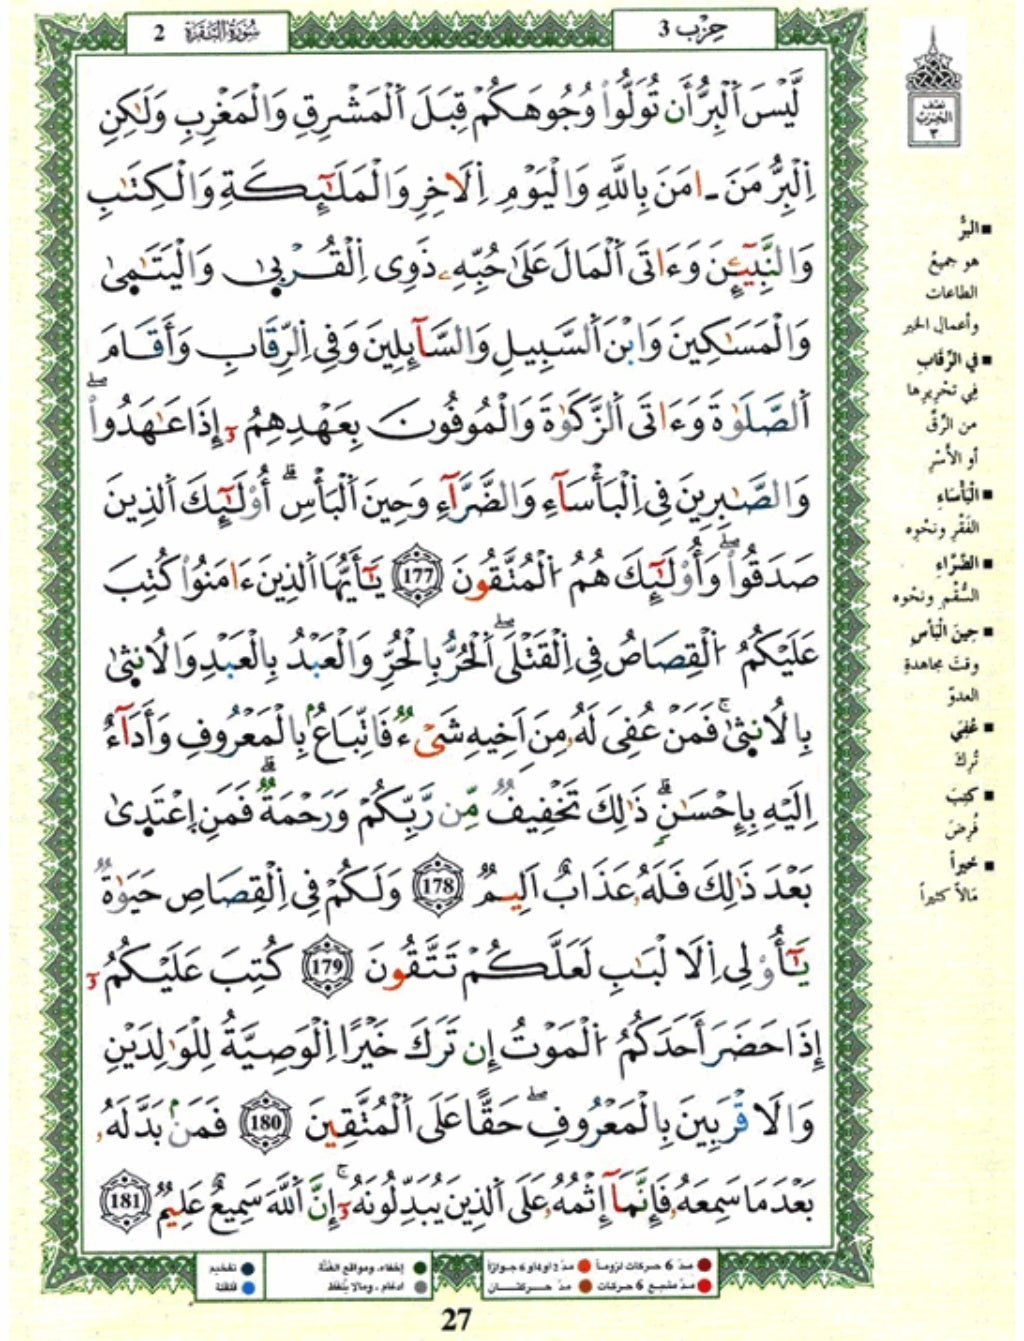 حِزْب 3
سُورَةُ البَقَرَة 2
لَّيْسَ اَ۬لْبِرُّ أَن تُوَلُّواْ وُجُوهَكُمْ قِبَلَ اَ۬لْمَشْرِقِ وَالْمَغْرِبِ وَلَٰكِنِ
اِ۬لْبِرُّ مَنَ ـ امَنَ بِاللَّهِ وَالْيَوْمِ اِ۬لَاخِرِ وَالْمَلَٰٓئِكَةِ وَالْكِتَٰبِ
وَالنَّبِيٓـِٕينَ وَءَاتَى اَ۬لْمَالَ عَلَىٰ حُبِّهِۦ ذَوِى اِ۬لْقُرْبۭىٰ وَالْيَتَٰمۭىٰ
وَالْمَسَٰكِينَ وَابْنَ اَ۬لسَّبِيلِ وَالسَّآئِلِينَ وَفِى اِ۬لرِّقَابِ وَأَقَامَ
اَ۬لصَّلَوٰةَ وَءَاتَى اَ۬لزَّكَوٰةَ وَالْمُوفُونَ بِعَهْدِهِمُۥٓ إِذَا عَٰهَدُواْۖ
وَالصَّٰبِرِينَ فِى اِ۬لْبَأْسَآءِ وَالضَّرَّآءِ وَحِينَ اَ۬لْبَأْسِۗ أُوْلَٰٓئِكَ اَ۬لذِينَ
صَدَقُواْۖ وَأُوْلَٰٓئِكَ هُمُ اُ۬لْمُتَّقُونَ 177 يَٰٓأَيُّهَا اَ۬لذِينَ ءَامَنُواْ كُتِبَ
عَلَيْكُمُ اُ۬لْقِصَاصُ فِى اِ۬لْقَتْلَىۖ اَ۬لْحُرُّ بِالْحُرِّ وَالْعَبْدُ بِالْعَبْدِ وَالُانثۭىٰ
بِالُانثۭىٰۚ فَمَنْ عُفِىَ لَهُۥ مِنَ اَخِيهِ شَىْءٌ فَاتِّبَاعُۢ بِالْمَعْرُوفِ وَأَدَآءٌ
اِلَيْهِ بِإِحْسَٰنٍۗ ذَٰلِكَ تَخْفِيفٌ مِّن رَّبِّكُمْ وَرَحْمَةٌۗ فَمَنِ اِ۪عْتَدۭىٰ
بَعْدَ ذَٰلِكَ فَلَهُۥ عَذَابٌ اَلِيمٌ 178 وَلَكُمْ فِى اِ۬لْقِصَاصِ حَيَوٰةٌ
يَٰٓأُوْلِى اِ۬لَالْبَٰبِ لَعَلَّكُمْ تَتَّقُونَ 179 كُتِبَ عَلَيْكُمُۥٓ
إِذَا حَضَرَ أَحَدَكُمُ اُ۬لْمَوْتُ إِن تَرَكَ خَيْرًا اِ۬لْوَصِيَّةُ لِلْوَٰلِدَيْنِ
وَالَاقْرَبِينَ بِالْمَعْرُوفِۖ حَقًّا عَلَى اَ۬لْمُتَّقِينَ 180 فَمَنۢ بَدَّلَهُۥ
بَعْدَ مَا سَمِعَهُۥ فَإِنَّمَآ إِثْمُهُۥ عَلَى اَ۬لذِينَ يُبَدِّلُونَهُۥٓۚ إِنَّ اَ۬للَّهَ سَمِيعٌ عَلِيمٌ 181
نصف
الحِزْب
٣
البِرُّ
هو جميعُ
الطاعات
وأعمال الخير
في الرِّقَابِ
في تحْرِيرِها
من الرِّقّ
أو الأَسْرِ
الْبَأْسَاءِ
الفَقْرِ ونحْوِه
الضَّرَّاءِ
السُّقْمِ ونحْوِه
حِينَ الْبَأْسِ
وقتَ مجاهدةِ
العدوّ
عُفِيَ
تُرِكَ
كُتِبَ
فُرِضَ
خيراً
مَالاً كثيراً
مدّ 6 حركات لزوماً
مدّ 2 أو 4 أو 6 جوازاً
مدّ مشبع 6 حركات
مدّ حركتان
إخفاء، ومواقع الغنّة
ادغام، ومالا يُلفظ
تفخيم
قلقلة
27